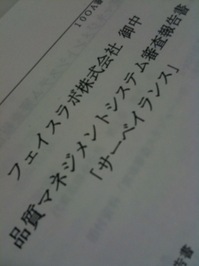 フェイスラボ株式会社 御中
品質マネジメントシステム審査報告書
「サーベイランス」